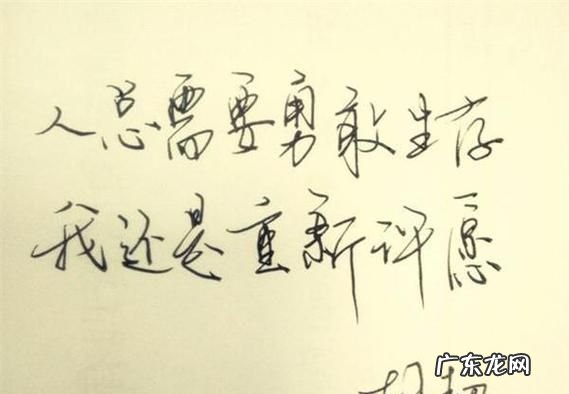 人总需要勇敢生存
我还是重新许愿
广东龙网